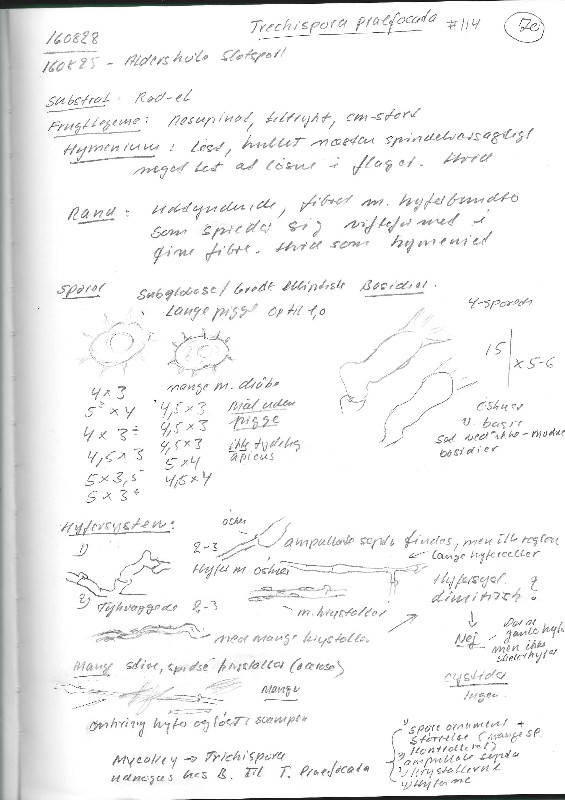 Trechispora praefocada #114 70
160828
160825 - Aldershvile Slotspark
Substrat: Rød-el
Frugtlegeme: Resupinat, tiltrykt, cm-stort
Hymenium: Løst, hullet næsten spindelvævsagtigt
noget let at løsne i flager. Hvid
Rand: Udtyndende, fibret m. hyfebundter
som spreder sig vifteformet i
fine fibre. Hvid som hymeniet
Sporer Subglobose/bredt elliptiske
Lange pigge op til 1,0
Basidier.
4-sporede
15 | x 5-6
Øskner
v. basis
mange m. dråbe
4 x 3 4,5 x 3 Mål uden
5 x 4 4,5 x 3 pigge
4 x 3 4,5 x 3 ikke tydelig
4,5 x 3 5 x 4 apicus
5 x 3,5 4,5 x 4
5 x 3
basidier
Hyfersystem:
1)
2-3
ampullate septa findes, men ikke reglen
lange hyfeceller
Hyfer m. øskner
2) Tykvæggede 2-3
m. krystaller
med mange krystaller
Hyfesys.
dimitisk?
Nej
men ikke
skelethyfer
Mange stive, spidse krystaller (acerose)
Mange
omkring hyfer også
Cystider
Ingen.
Mycokey → Trichispora
udnøgles hos B. til T. Praefocada
1) spore ornament +
størrelse (mange sp.
kontrolleret)
2) ampullate septa
3) krystallerne
4) hyferne